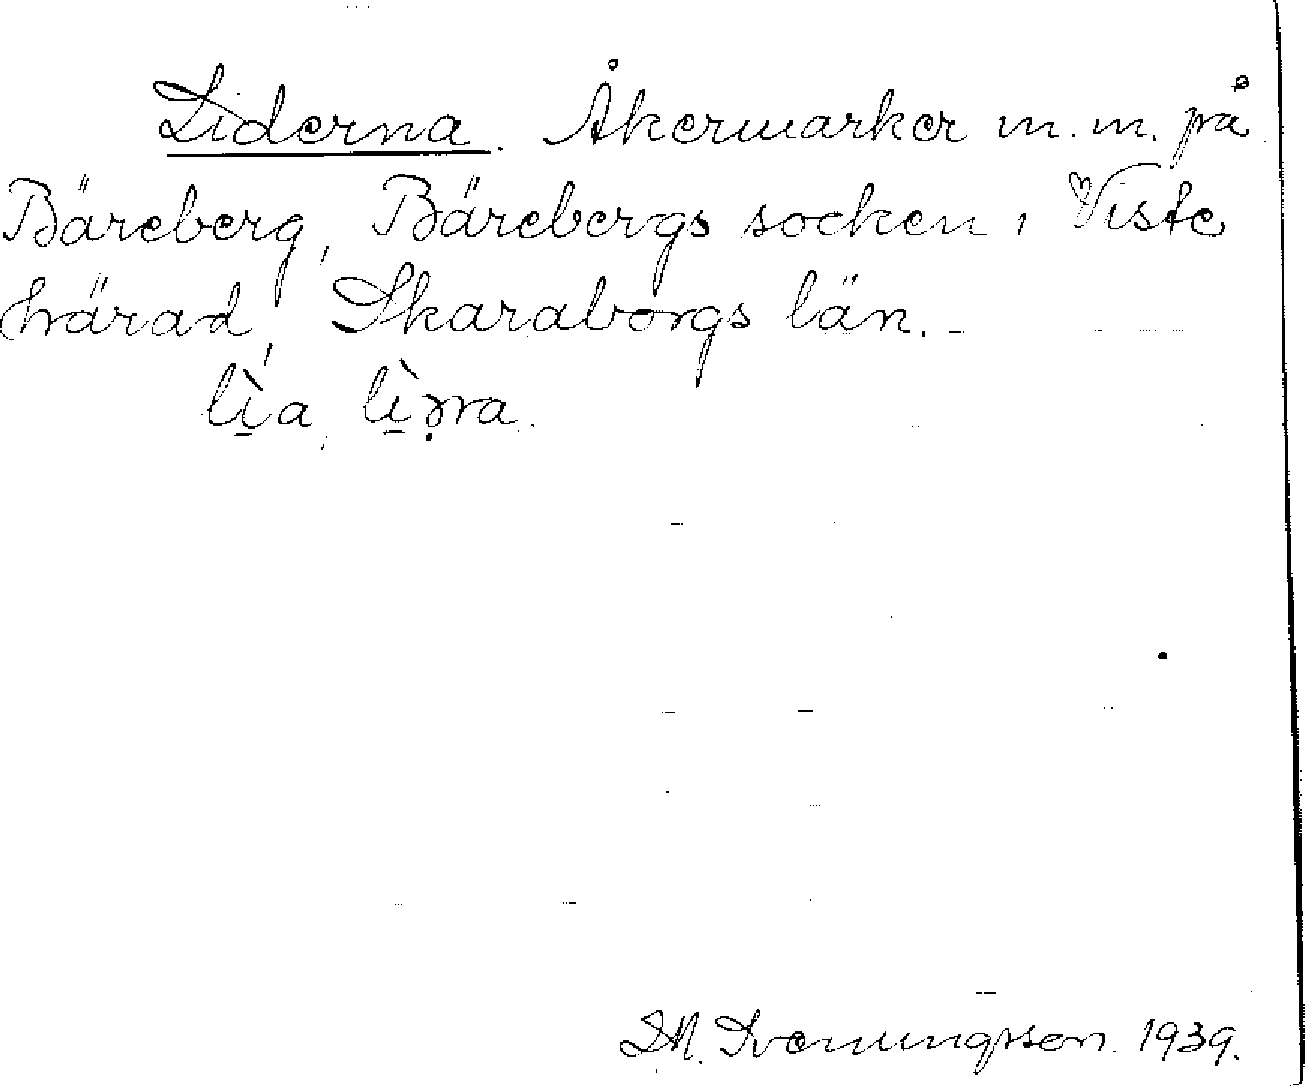 Liderna. Åkermarker m. m. på
Bäreberg, Bärebergs socken, Viste
härad, Skaraborgs län.
lìa, lìəṇa.
D.A. Ivarsson 1939.